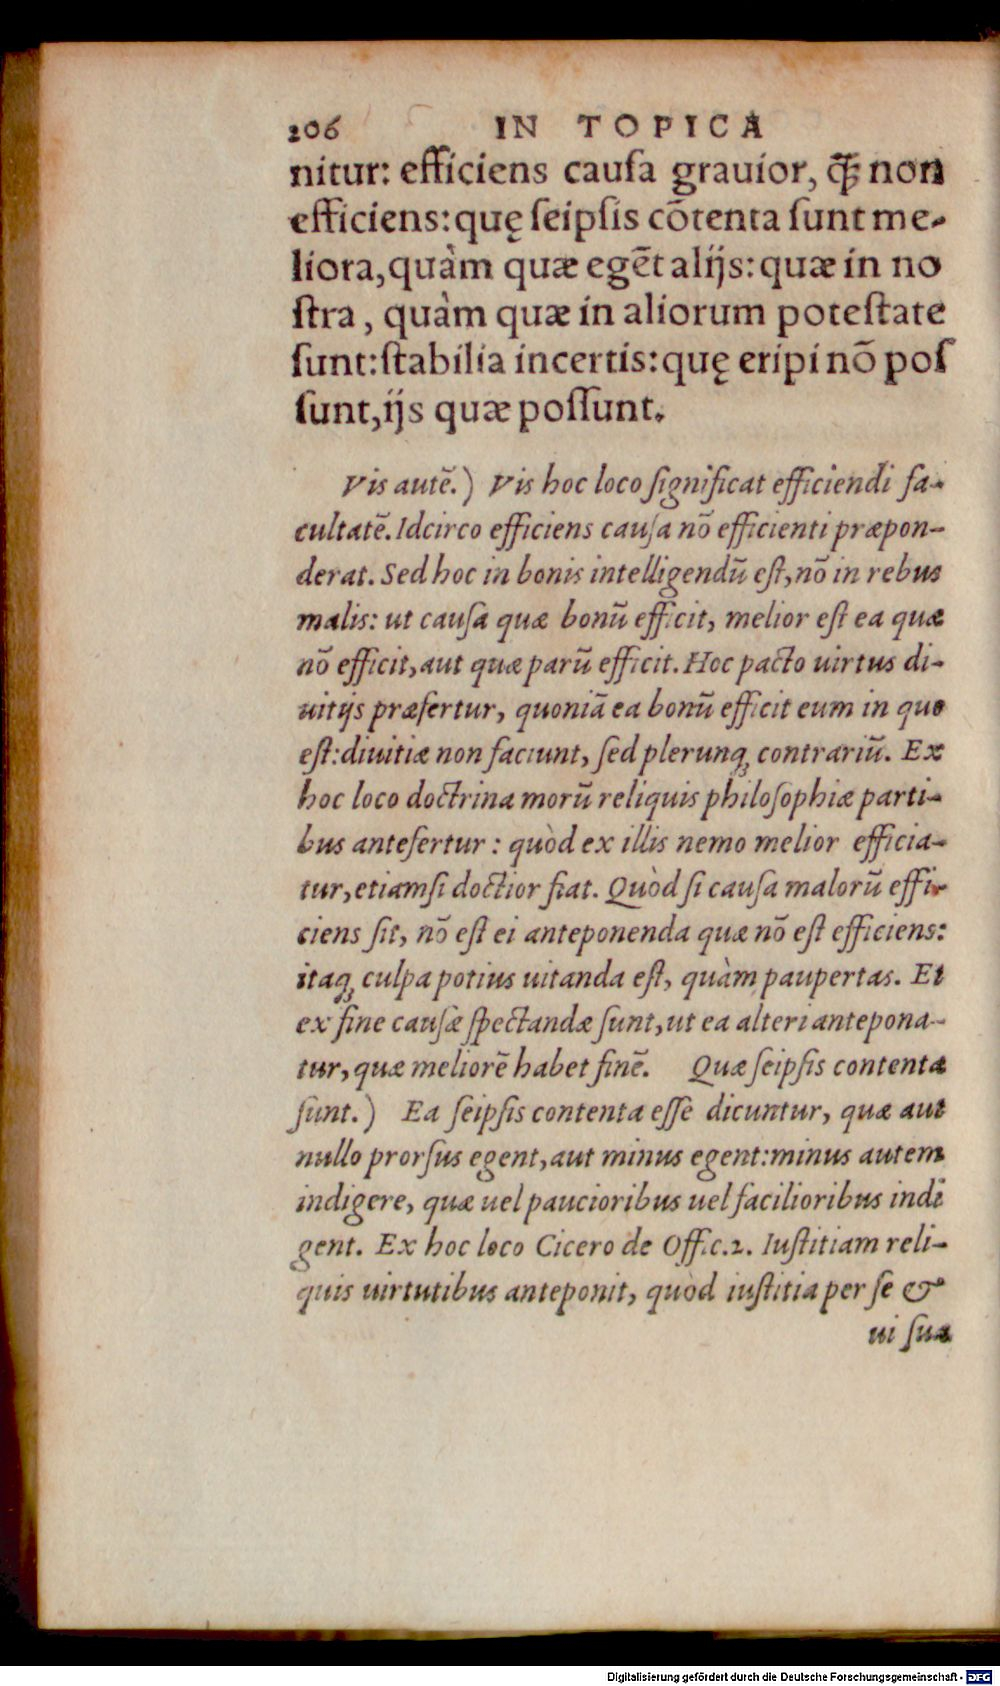 206 IN TOPICA
nitur: efficiens cauſa grauior, ꝙ̃ non
efficiens: quę ſeipſis cõtenta ſunt me-
liora, quàm quæ egẽt alijs: quæ in no
ſtra, quàm quæ in aliorum poteſtate
ſunt: ſtabilia incertis: quę eripi nõ poſ
ſunt, ijs quæ poſſunt.
Vis autẽ.) Vis hoc loco ſignificat efficiendi fa-
cultatẽ. Idcirco efficiens cauſa nõ efficienti præpon-
derat. Sed hoc in bonis intelligendũ eſt, nõ in rebus
malis: ut cauſa quæ bonũ efficit, melior eſt ea quæ
nõ efficit, aut quæ parũ efficit. Hoc pacto uirtus di-
uitijs præfertur, quoniã ea bonũ efficit eum in quo
eſt: diuitiæ non faciunt, ſed plerunqꝫ contrariũ. Ex
hoc loco doctrina morũ reliquis philoſophiæ parti-
bus antefertur: quòd ex illis nemo melior efficia-
tur, etiamſi doctior fiat. Quòd ſi cauſa malorũ effi-
ciens ſit, nõ eſt ei anteponenda quæ nõ eſt efficiens:
itaqꝫ culpa potius uitanda eſt, quàm paupertas. Et
ex fine cauſæ ſpectandæ ſunt, ut ea alteri antepona-
tur, quæ meliorẽ habet finẽ. Quæ ſeipſis contenta
ſunt.) Ea ſeipſis contenta eſſe dicuntur, quæ aut
nullo prorſus egent, aut minus egent: minus autem
indigere, quæ uel paucioribus uel facilioribus indi
gent. Ex hoc loco Cicero de Offic. 2. Iuſtitiam reli-
quis uirtutibus anteponit, quòd iuſtitia per ſe &
ui ſua
Digitalisierung gefördert durch die Deutsche Forschungsgemeinschaft - DFG